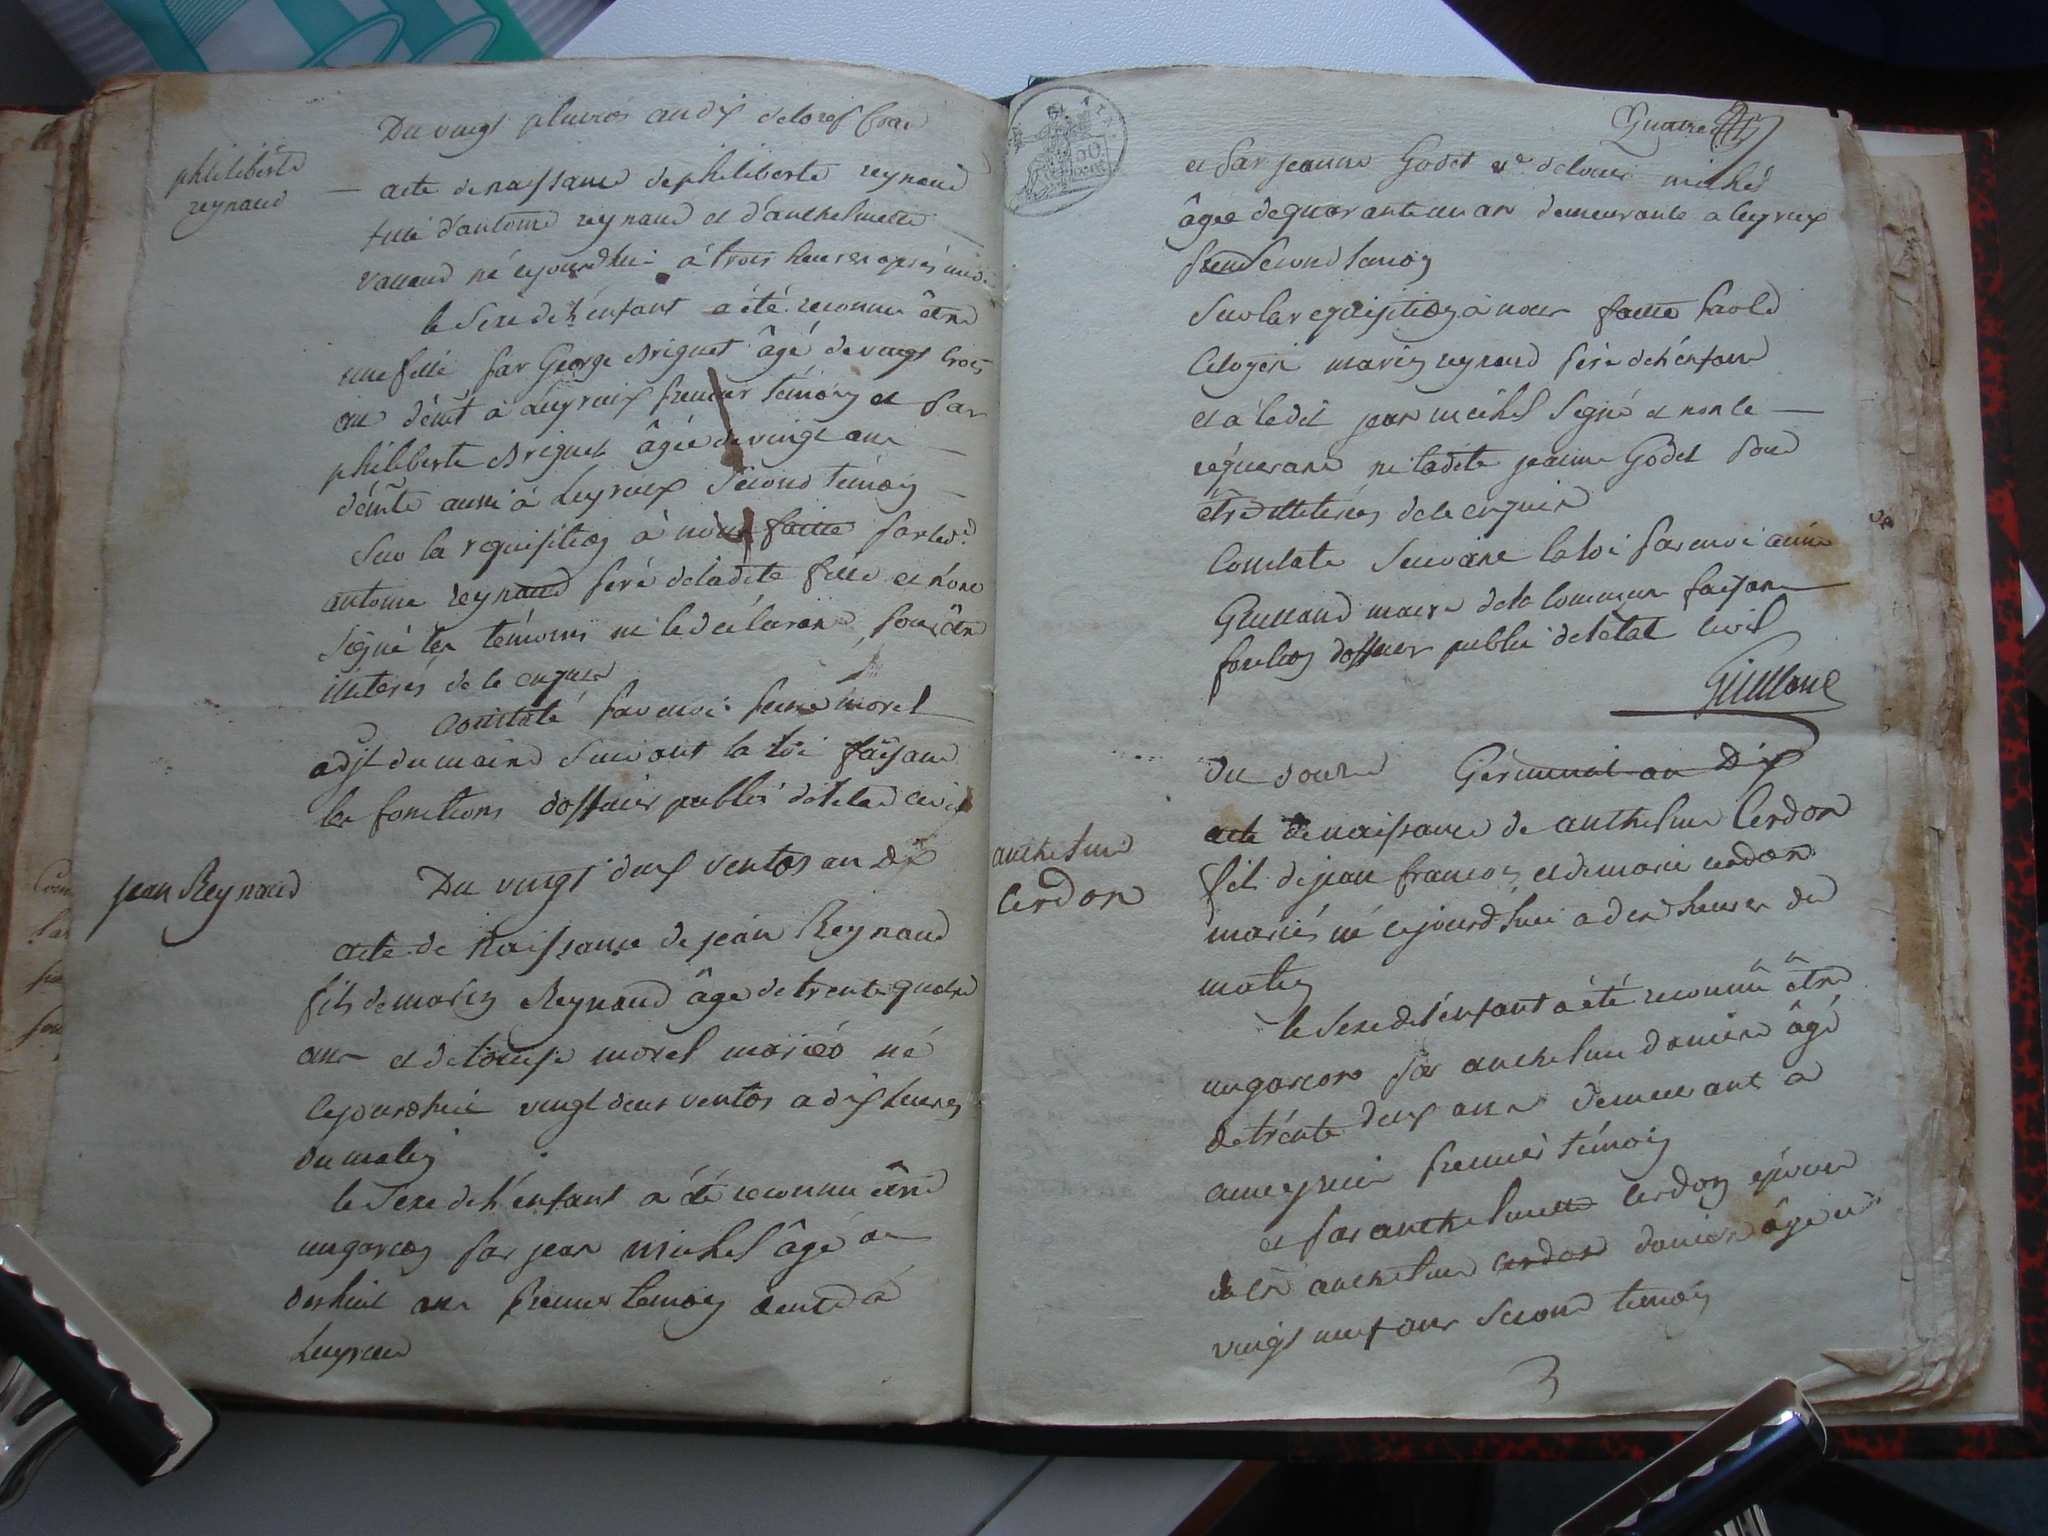 Du vingt pluvios an dix de la rep fran
philiberte
reynaud
acte de naissance de philiberte reynaud
fille d'antoine reynaud et d'anthelmette
né ce jourdhui à trois heures après midi
le Sexe de l'enfant a été reconnu être
une fille par George Briguet âgé de vingt trois
ans à Leyrieux premier témoin et par
philiberte Briguet âgée de vingt ans
aussi à Leyrieux Second témoin
Sur la requisition à nous faitte par led.
antoine reynaud père de ladite fille et n'ont
Signé les témoins ne le déclarant pour être
illiterés de ce enquis
Constaté par moi morel
adjt du maire Suivant la loi faisant
les fonctions dofficier public de letat civil
jean Reynaud
Du vingt deux ventos an dix
acte de Naissance de jean Reynaud
fils de marin Reynaud âgé de trente quatre
ans et de morel mariés né
cejourdhui vingt deux ventos a dix heures
du matin
le Sexe de l'enfant a été reconnu être
un garcon par jean michel âgé de
dixhuit ans premier temoin à
Leyrieu
Quatre
et par jeanne Godet ve de louis michel
âgée de quarante un an demeurante a leyrieux
Second temoin
Sur la requisition à nous faitte par le
Citoyen marin reynaud père de l'enfant
et a ledit jean michel Signé et non le
réquerant ni ladite jeanne Godet pour
être illiterés de ce enquis
Constaté Suivant la loi par moi aimé
Guilland maire de la commune faisant
fonction dofficier public de létat civil
Guilland
du douze Germinal an Dix
anthelme
Cerdon
acte de naissance de anthelme Cerdon
fils de jean francois et de marie cerdon
mariés né cejourdhui a dix heures du
matin
le Sexe de l'enfant a été reconnu être
un garcon par anthelme âgé
de trente deux ans demeurant a
premier témoin
et par anthelmette Cerdon épouse
anthelme cerdon âgée
vingt neuf ans Second temoin
3